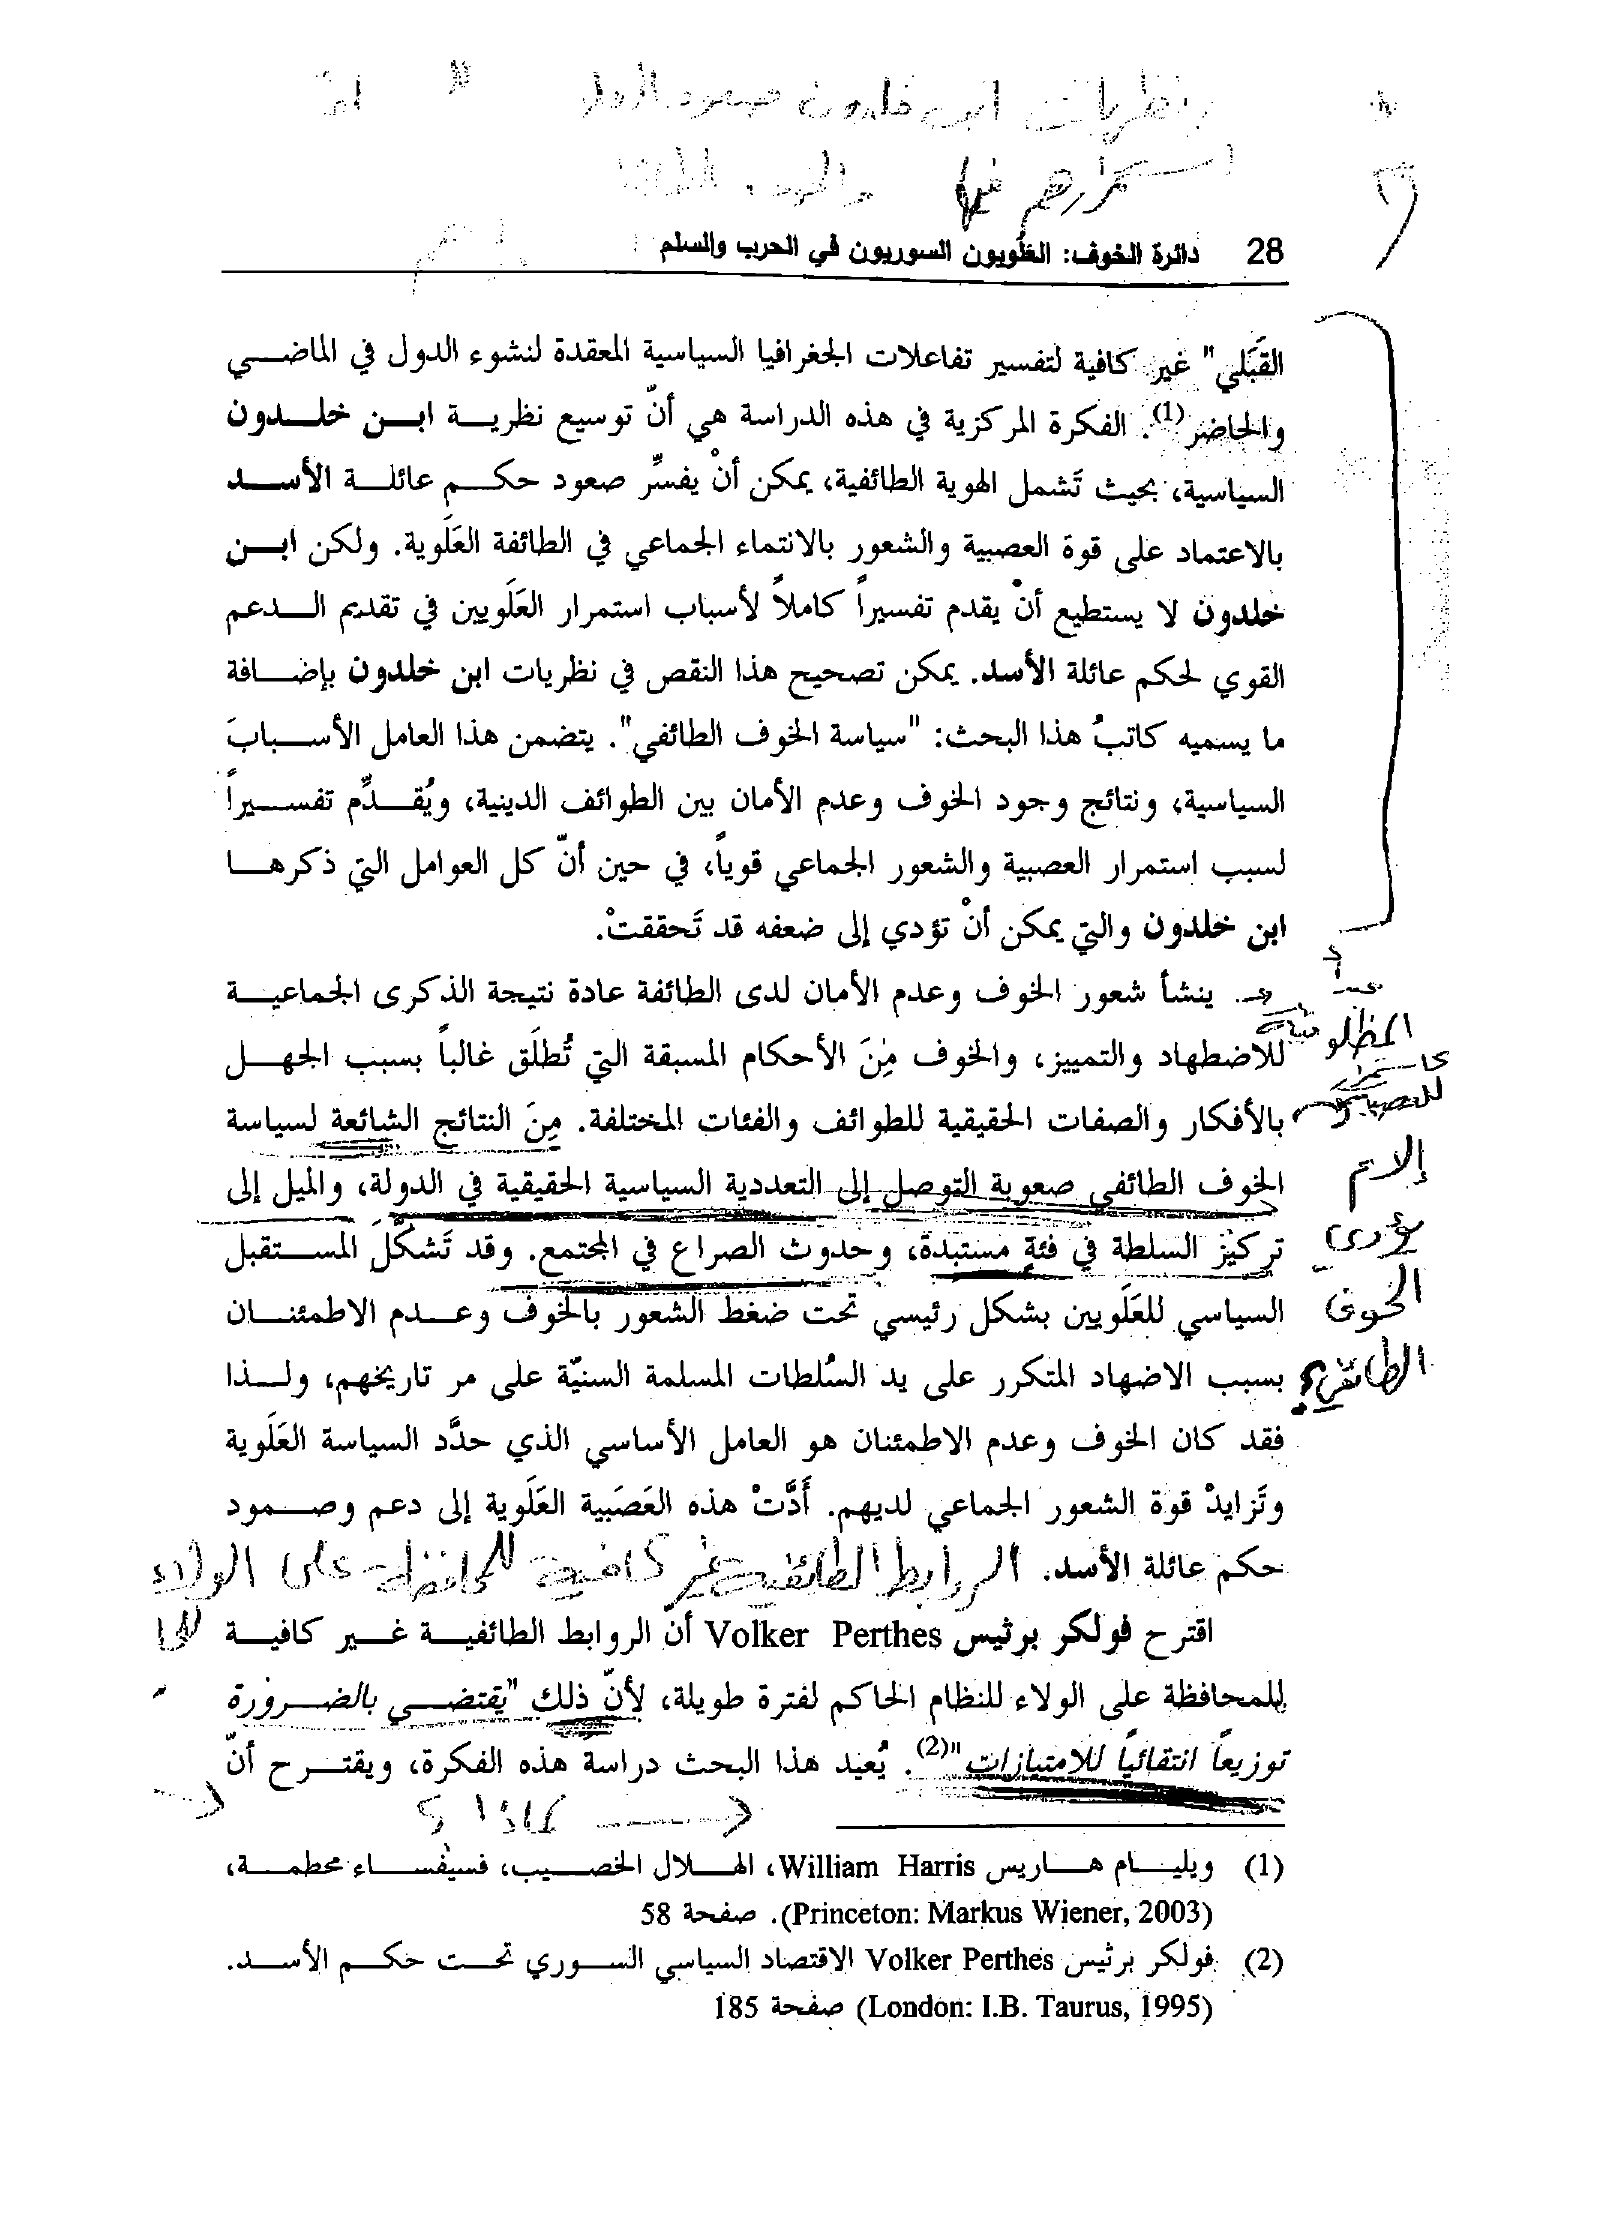 نظريات ابن خلدون صعود الدولة
استمرارهم فيها
28 دائرة الخوف: العَلَويون السوريون في الحرب والسلم
القَبَلي" غير كافية لتفسير تفاعلات الجغرافيا السياسية المعقدة لنشوء الدول في الماضي
والحاضر(1). الفكرة المركزية في هذه الدراسة هي أنّ توسيع نظرية ابن خلدون
السياسية، بحيث تَشمل الهوية الطائفية، يمكن أنْ يفسِّر صعود حكم عائلة الأسد
بالاعتماد على قوة العصبية والشعور بالانتماء الجماعي في الطائفة العَلَوية. ولكن ابن
خلدون لا يستطيع أنْ يقدم تفسيراً كاملاً لأسباب استمرار العَلَويين في تقديم الدعم
القوي لحكم عائلة الأسد. يمكن تصحيح هذا النقص في نظريات ابن خلدون بإضافة
ما يسميه كاتبُ هذا البحث: "سياسة الخوف الطائفي". يتضمن هذا العامل الأسبابَ
السياسية، ونتائج وجود الخوف وعدم الأمان بين الطوائف الدينية، ويُقدِّم تفسيراً
لسبب استمرار العصبية والشعور الجماعي قوياً، في حين أنّ كل العوامل التي ذكرها
ابن خلدون والتي يمكن أنْ تؤدي إلى ضعفه قد تَحققتْ.
ينشأ شعور الخوف وعدم الأمان لدى الطائفة عادة نتيجة الذكرى الجماعية
المظلومية
للاضطهاد والتمييز، والخوف مِنَ الأحكام المسبقة التي تُطلَق غالباً بسبب الجهل
بالأفكار والصفات الحقيقية للطوائف والفئات المختلفة. مِنَ النتائج الشائعة لسياسة
إلام
الخوف الطائفي صعوبة التوصل إلى التعددية السياسية الحقيقية في الدولة، والميل إلى
يؤدي
تركيز السلطة في فئةٍ مستبدة، وحدوث الصراع في المجتمع. وقد تَشكَّلَ المستقبل
الخوف
السياسي للعَلَويين بشكل رئيسي تحت ضغط الشعور بالخوف وعدم الاطمئنان
الطائفي؟
بسبب الاضهاد المتكرر على يد السُلطات المسلمة السنيّة على مر تاريخهم، ولذا
فقد كان الخوف وعدم الاطمئنان هو العامل الأساسي الذي حدَّد السياسة العَلَوية
وتَزايدْ قوة الشعور الجماعي لديهم. أَدَّتْ هذه العَصَبية العَلَوية إلى دعم وصمود
حكم عائلة الأسد. الروابط الطائفية غير كافية للمحافظة على الولاء
اقترح فولكر برثيس Volker Perthes أنّ الروابط الطائفية غير كافية
للمحافظة على الولاء للنظام الحاكم لفترة طويلة، لأنّ ذلك "يقتضي بالضرورة
توزيعاً انتقائياً للامتيازات"(2). يُعيد هذا البحث دراسة هذه الفكرة، ويقترح أنّ
لماذا؟
(1) ويليام هاريس William Harris، الهلال الخصيب، فسيفساء محطمة،
(Princeton: Markus Wiener, 2003). صفحة 58
(2) فولكر برثيس Volker Perthes الاقتصاد السياسي السوري تحت حكم الأسد.
(London: I.B. Taurus, 1995) صفحة 185